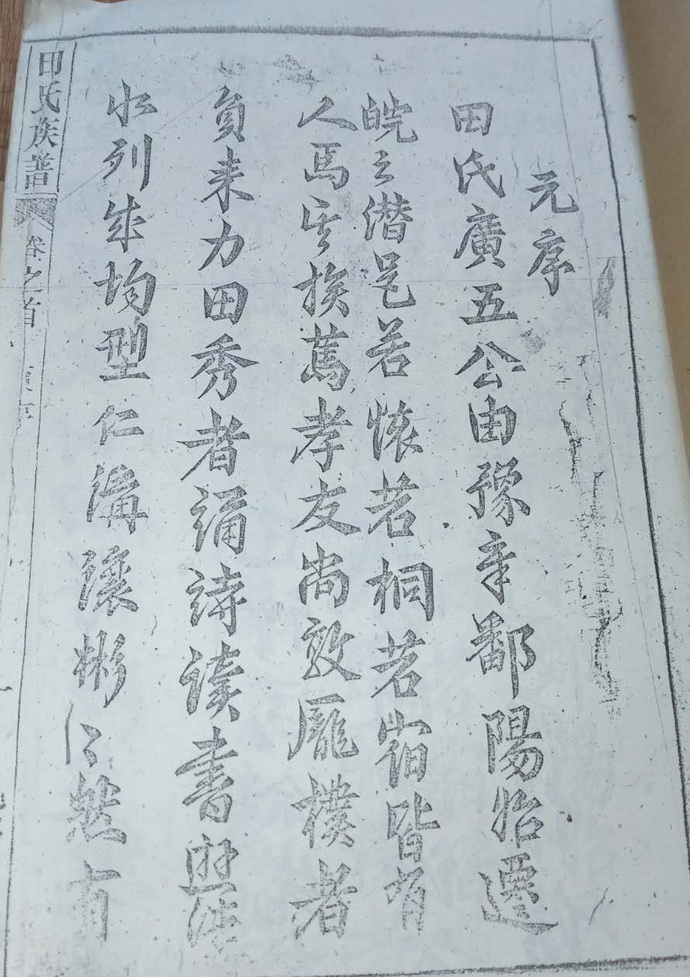 元序
田氏廣五公由豫章鄱陽始遷
皖之潛邑若懷若桐若宿皆有
人焉其族篤孝友尚敦龐樸者
負耒力田秀者誦詩讀書遊泮
水列成均型仁講讓彬〻然有
田氏族譜 卷之首